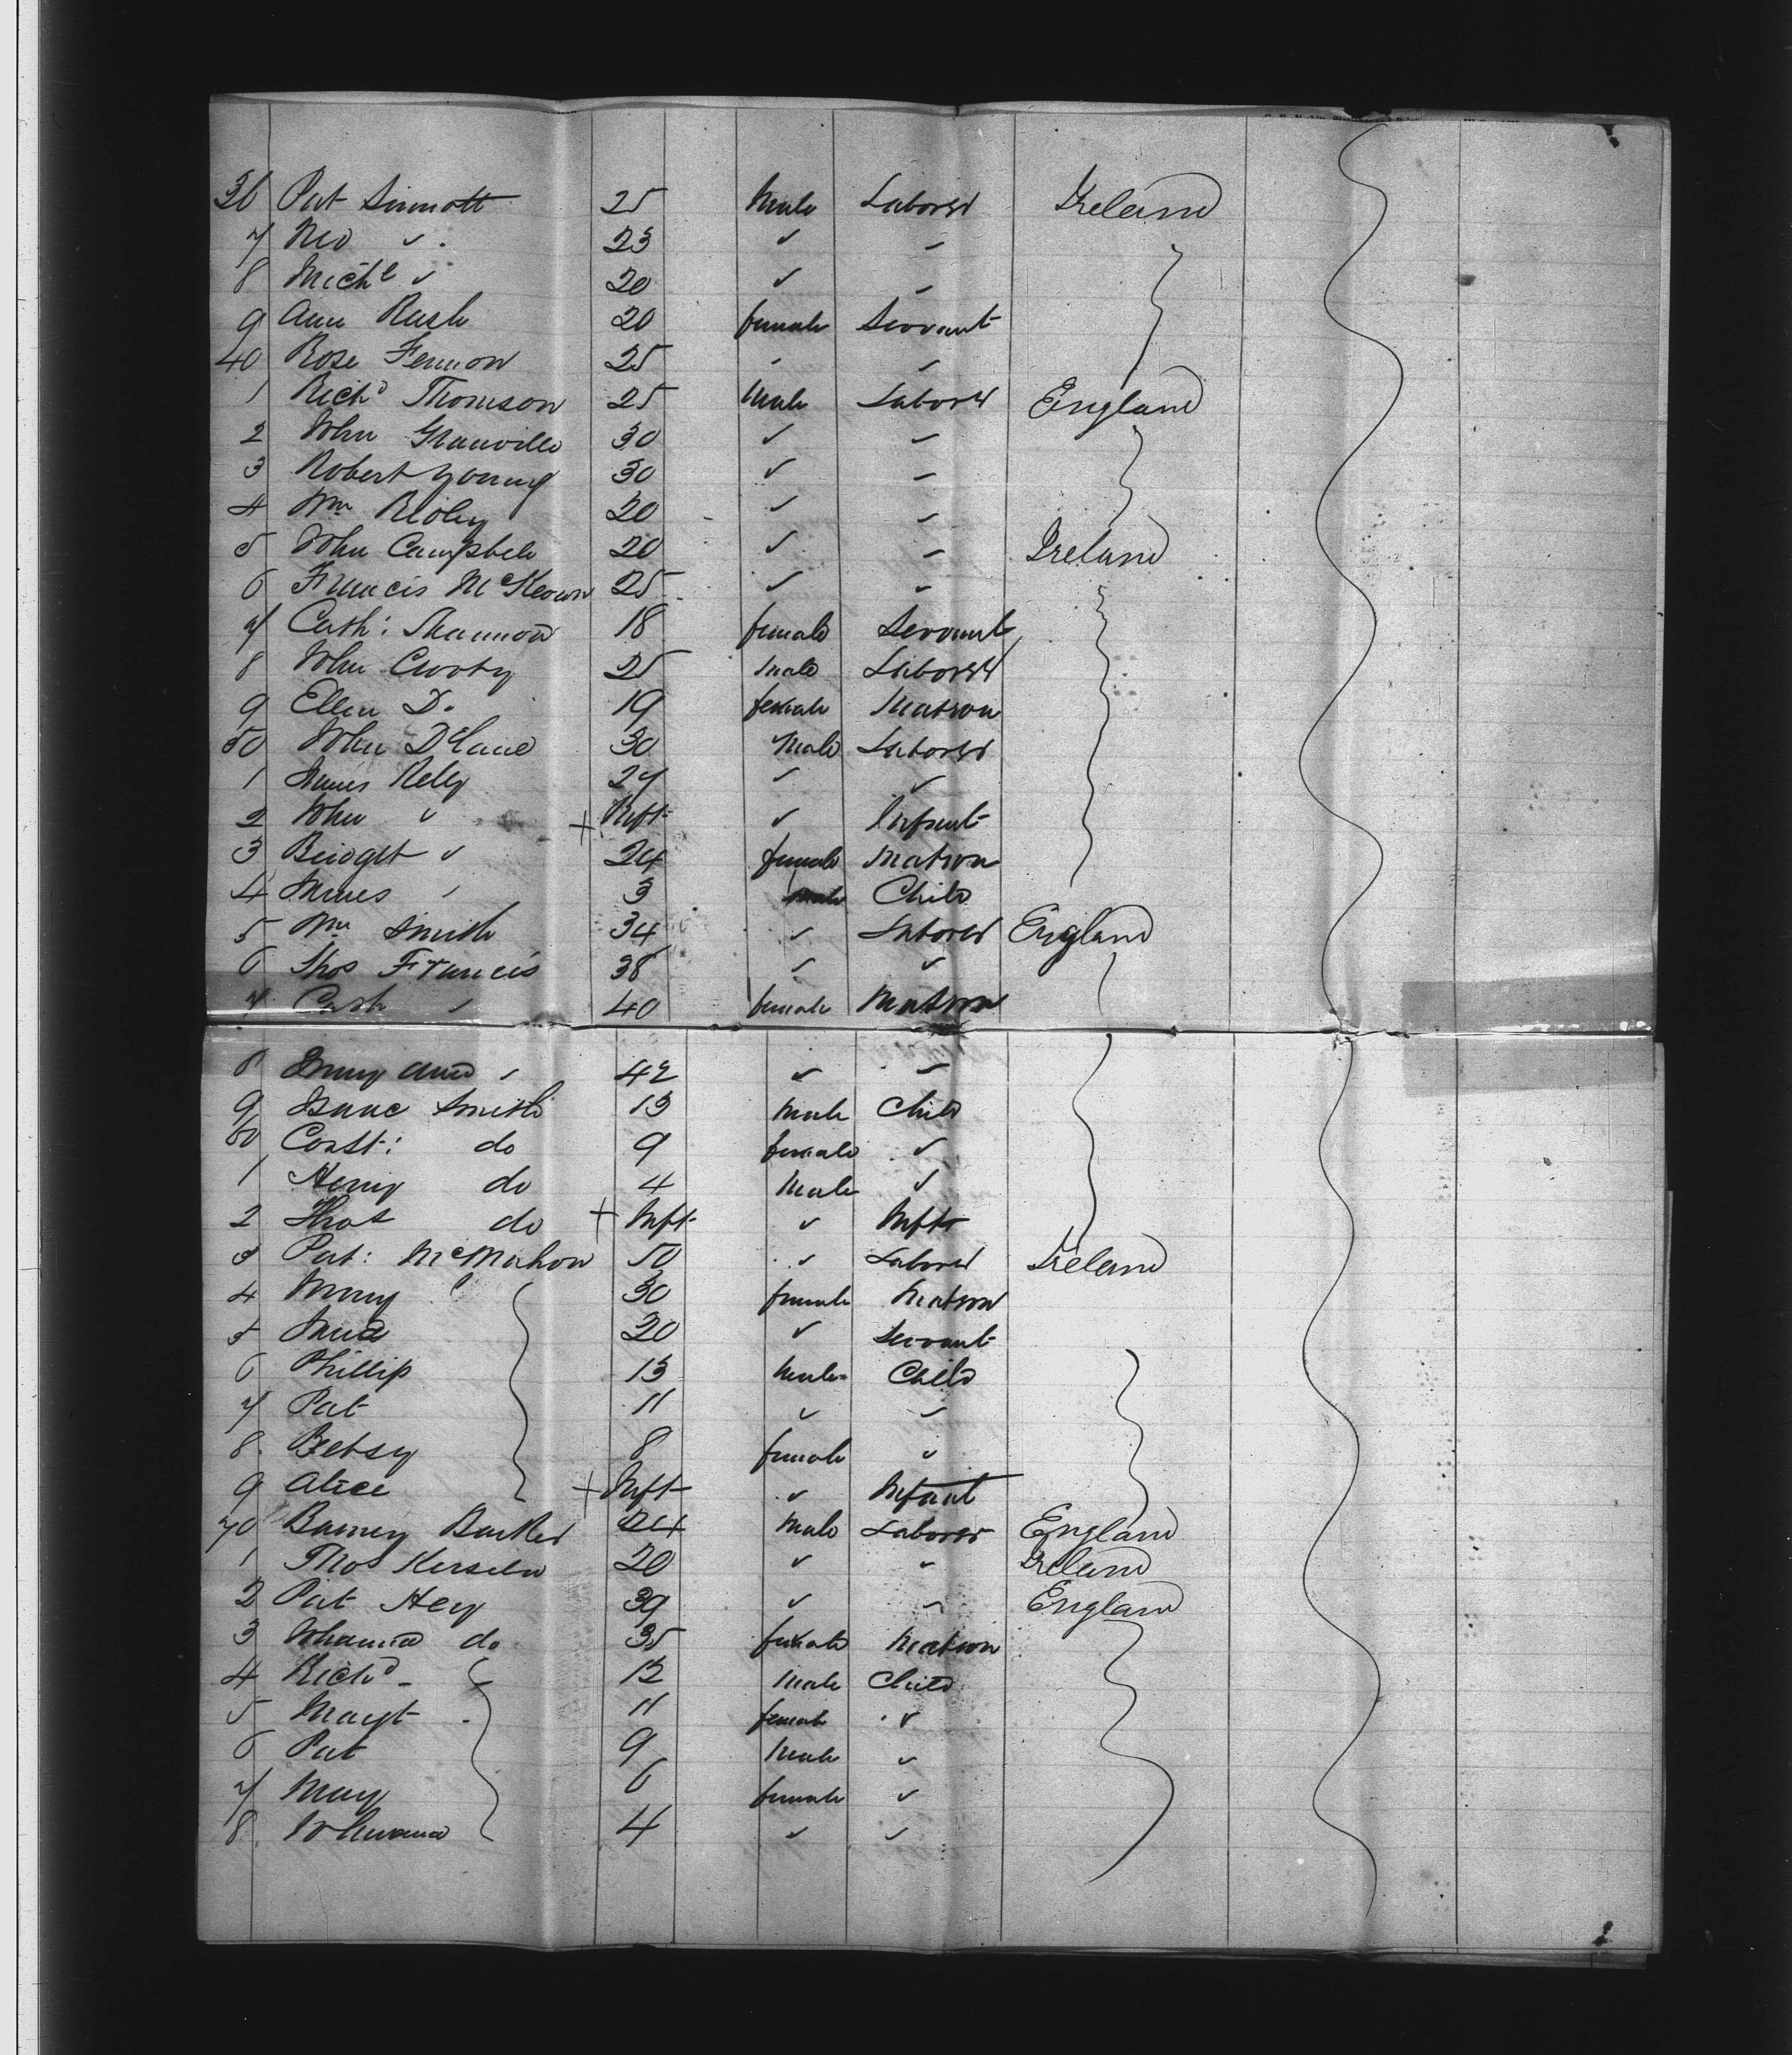 36 Pat Sinnott 25 Male Laborer Ireland
7 Ned " 23 " "
8 Michl " 20 " "
9 Ann Rush 20 female Servant
40 Rose Fennon 25 " "
1 Richd Thomson 25 Male Laborer England
2 John Granville 30 " "
3 Robert Young 30 " "
4 Wm Ridley 20 " "
5 John Campbell 20 " " Ireland
6 Francis McKeown 25 " "
7 Cath: Shannon 18 female Servant
8 John 25 Male Laborer
9 Ellen D. 19 female Matron
50 John 30 Male Laborer
1 James Kelly 27 " "
2 John " + Inft " Infant
3 Bridget " 24 female Matron
4 James " 3 Male Child
5 Wm Smith 34 " Laborer England
6 Thos Francis 38 " "
7 Cath " 40 female Matron
8 Mary Ann " 42 " "
9 Isaac Smith 13 Male Child
60 Const: do 9 female "
1 Henry do 4 Male "
2 Thos do + Inft " Inft
3 Pat: McMahon 50 " Laborer Ireland
4 Mary " 30 female Matron
5 20 " Servant
6 Phillip 13 Male Child
7 Pat 11 " "
8 Betsy 8 female "
9 Alice + Inft " Infant
70 Barney Barker 24 Male Laborer England
1 Thos 20 " " Ireland
2 Pat Hey 39 " " England
3 Johanna do 35 female Matron
4 Richd 12 Male Child
5 Margt 11 female "
6 Pat 9 Male "
7 Mary 6 female "
8 Johanna 4 " "